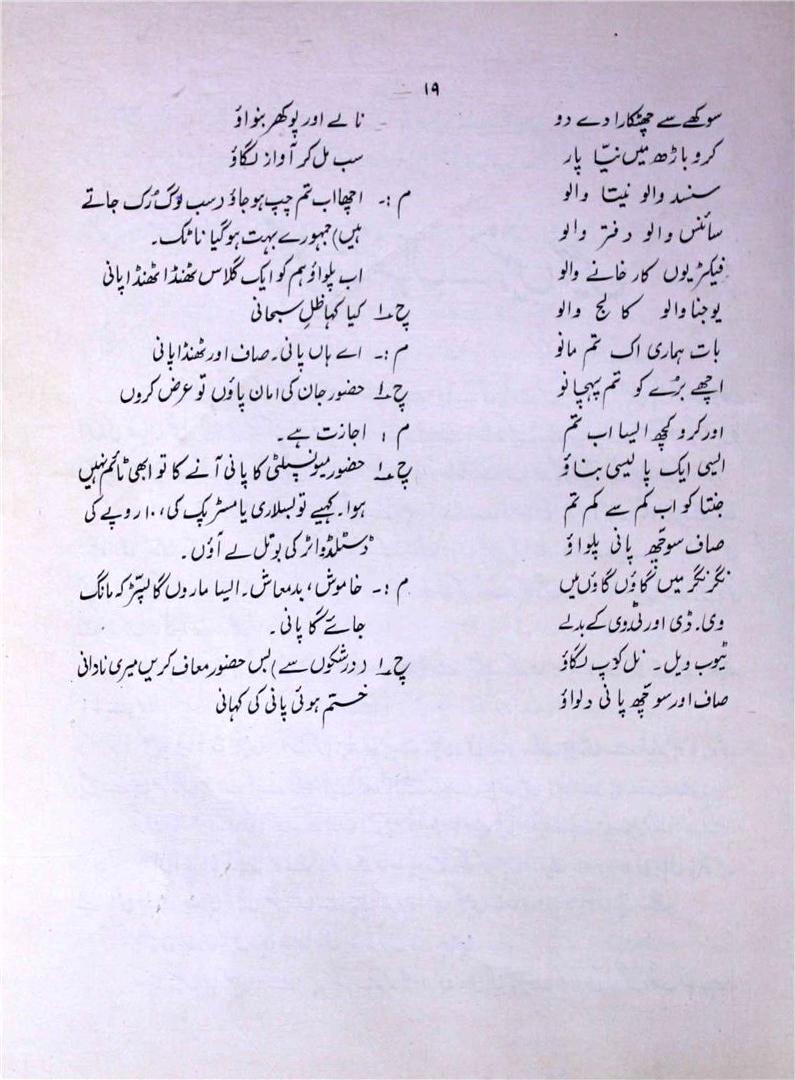 ۱۹
سوکھے سے چھٹکارا دے دو
کرو باڑھ میں نیّا پار
سنسد والو نیتا والو
سائنس والو دفتر والو
فیکٹریوں کارخانے والو
یوجنا والو کالج والو
بات ہماری اک تم مانو
اچھے بُرے کو تم پہچانو
اور کرو کچھ ایسا اب تم
ایسی ایک پالیسی بناؤ
جنتا کو اب کم سے کم تم
صاف سوچھ پانی پلواؤ
نگر نگر میں گاؤں گاؤں میں
وی۔ ڈی اور ٹی وی کے بدلے
ٹیوب ویل۔ نل کوپ لگاؤ
صاف اور سوچھ پانی دلواؤ
نالے اور پوکھر بنواؤ
سب مل کر آواز لگاؤ
م :۔ اچھا اب تم چپ ہو جاؤ (سب لوگ رُک جاتے
ہیں) جمہورے بہت ہو گیا ناٹک۔
اب پلواؤ ہم کو ایک گلاس ٹھنڈا ٹھنڈا پانی
ج۱ کیا کہا ظلِ سبحانی
م :۔ اے ہاں پانی۔ صاف اور ٹھنڈا پانی
ج۱ حضور جان کی امان پاؤں تو عرض کروں
م : اجازت ہے۔
ج۱ حضور میونسپلٹی کا پانی آنے کا تو ابھی ٹائم نہیں
ہوا۔ کہیے تو بسلاری یا مسٹر پک کی ۱۰، روپے کی
ڈسٹلڈ واٹر کی بوتل لے آؤں۔
م :۔ خاموش، بدمعاش۔ ایسا ماروں گا لپتڑ کہ مانگ
جائے گا پانی۔
ج۱ (درشکوں سے) بس حضور معاف کریں میری نادانی
ختم ہوئی پانی کی کہانی